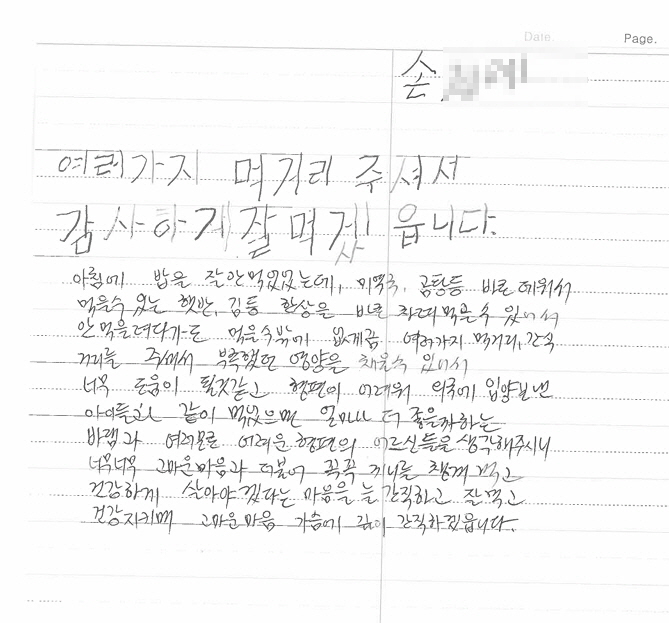 Date. Page.
손
여러가지 먹거리 주셔서
감사하게 잘 먹겠읍니다.
아침에 밥을 잘 안 먹었었는데, 미역국, 곰탕등 바로 데워서
먹을수 있는 햇반, 김등 한상을 바로 차려먹을 수 있어서
안 먹을려다가도 먹을수밖에 없게끔 여러가지 먹거리, 간식
거리를 주셔서 부족했던 영양을 채울수 있어서
너무 도움이 될것같고 형편이 어려워 외국에 입양보낸
아이들과 같이 먹었으면 얼마나 더 좋을까하는
바램과 여러모로 어려운 형편의 어르신들을 생각해주시니
너무너무 고마운마음과 더불어 꼭꼭 끼니를 챙겨 먹고
건강하게 살아야 겠다는 마음을 늘 간직하고 잘 먹고
건강지키며 고마운마음 가슴에 깊이 간직하겠읍니다.